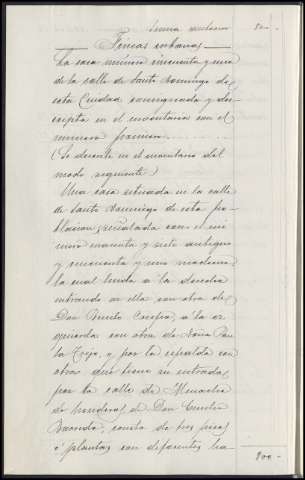 Suma anterior 800.-
Fincas urbanas
La casa número cincuenta y uno
de la calle de Santo Domingo de
esta Ciudad consignada y des-
cripta en el inventario con el
número primero.
(Se describe en el inventario del
modo siguiente)
Una casa situada en la calle
de Santo Domingo de esta po-
blacion, señalada con el nú-
mero cuarenta y siete antiguo
y cincuenta y uno moderno
la cual linda á la derecha
entrando en ella con otra de
Don Benito á la iz-
quierda con otra de Doña
la y por la espalda con
otras que tiene su entrada,
por la calle de
de herederos de Don
consta de tres pisos
ó plantas con diferentes ha-
800.-